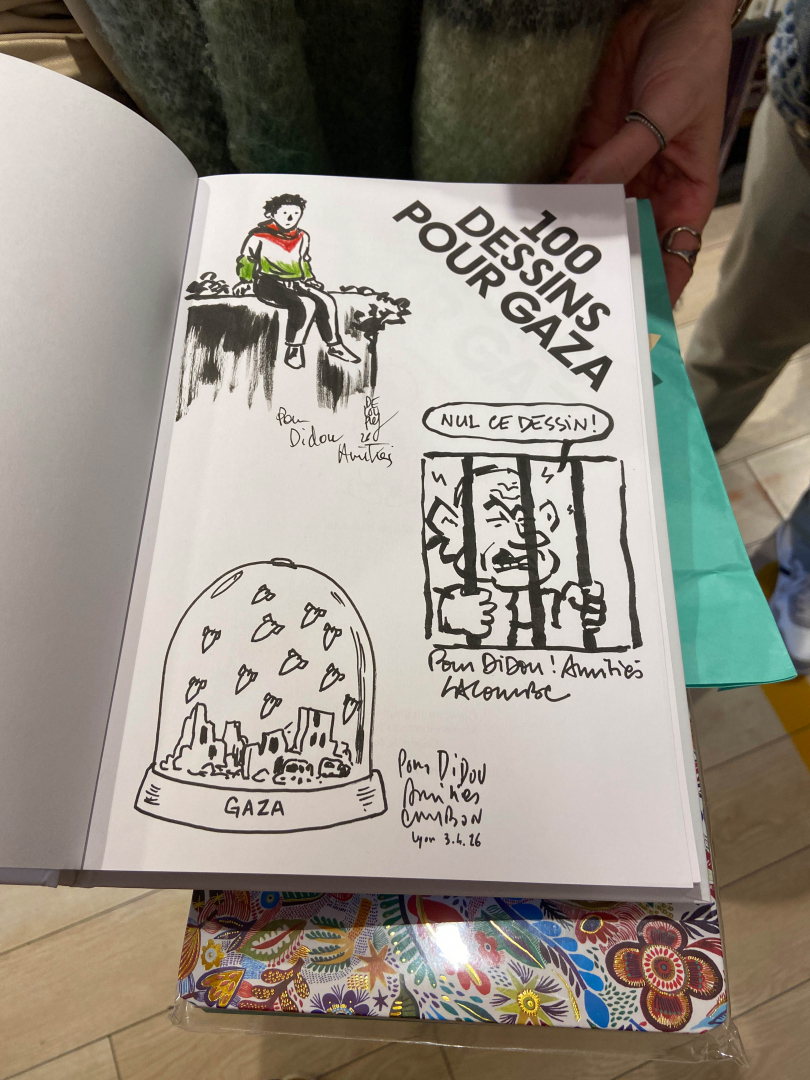 100
DESSINS
POUR GAZA
Pour
Didou
Amitiés
26
NUL CE DESSIN!
Pour Didou! Amitiés
LACOMBE
GAZA
Pour DiDou
Amitiés
Lyon 3.4.26